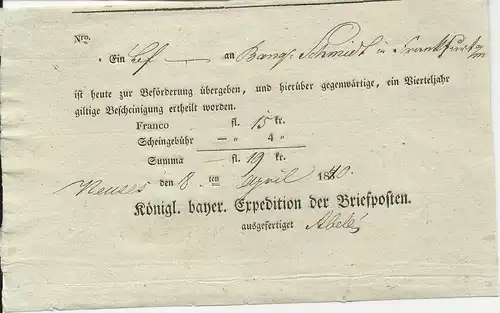 Nro.
Ein Bf — an Banq. Schmidt in Frankfurt a/m
ist heute zur Beförderung übergeben, und hierüber gegenwärtige, ein Vierteljahr
giltige Bescheinigung ertheilt worden.
Franco fl. 15 kr.
Scheingebühr — „ 4 „
Summa — fl. 19 kr.
den 8. ten April 1840.
Königl. bayer. Expedition der Briefposten.
ausgefertiget Abele